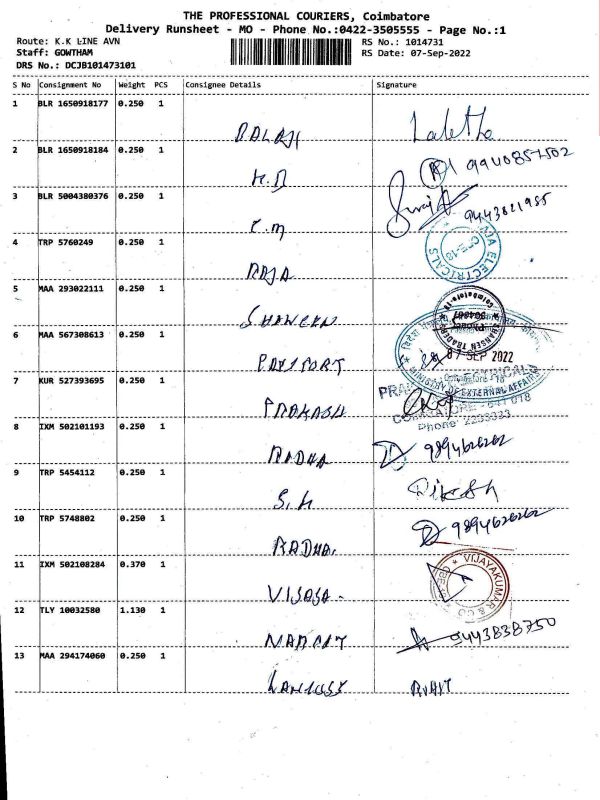 THE PROFESSIONAL COURIERS, Coimbatore
Delivery Runsheet - MO - Phone No.:0422-3505555 - Page No.:1
Route: K.K LINE AVN RS No.: 1014731
Staff: GOWTHAM RS Date: 07-Sep-2022
DRS No.: DCJB101473101
S No Consignment No Weight PCS Consignee Details Signature
1 BLR 1650918177 0.250 1
BALAJI Laletha
2 BLR 1650918184 0.250 1
H.D 9940857502
3 BLR 5004380376 0.250 1
C.M 9443821985
4 TRP 5760249 0.250 1
RAJA RAJA ELECTRICALS
5 MAA 293022111 0.250 1
6 MAA 567308613 0.250 1
PASSPORT 07 SEP 2022
MINISTRY OF EXTERNAL AFFAIRS
7 KUR 527393695 0.250 1
PRAKASH
COIMBATORE - 641 018
Phone: 2233333
8 IXM 502101193 0.250 1
RADHA 9894626262
9 TRP 5454112 0.250 1
S.H
10 TRP 5748802 0.250 1
RADHA. 9894626262
11 IXM 502108284 0.370 1
VIJAYA - VIJAYAKUMAR & CO
12 TLY 10032580 1.130 1
9443838750
13 MAA 294174060 0.250 1